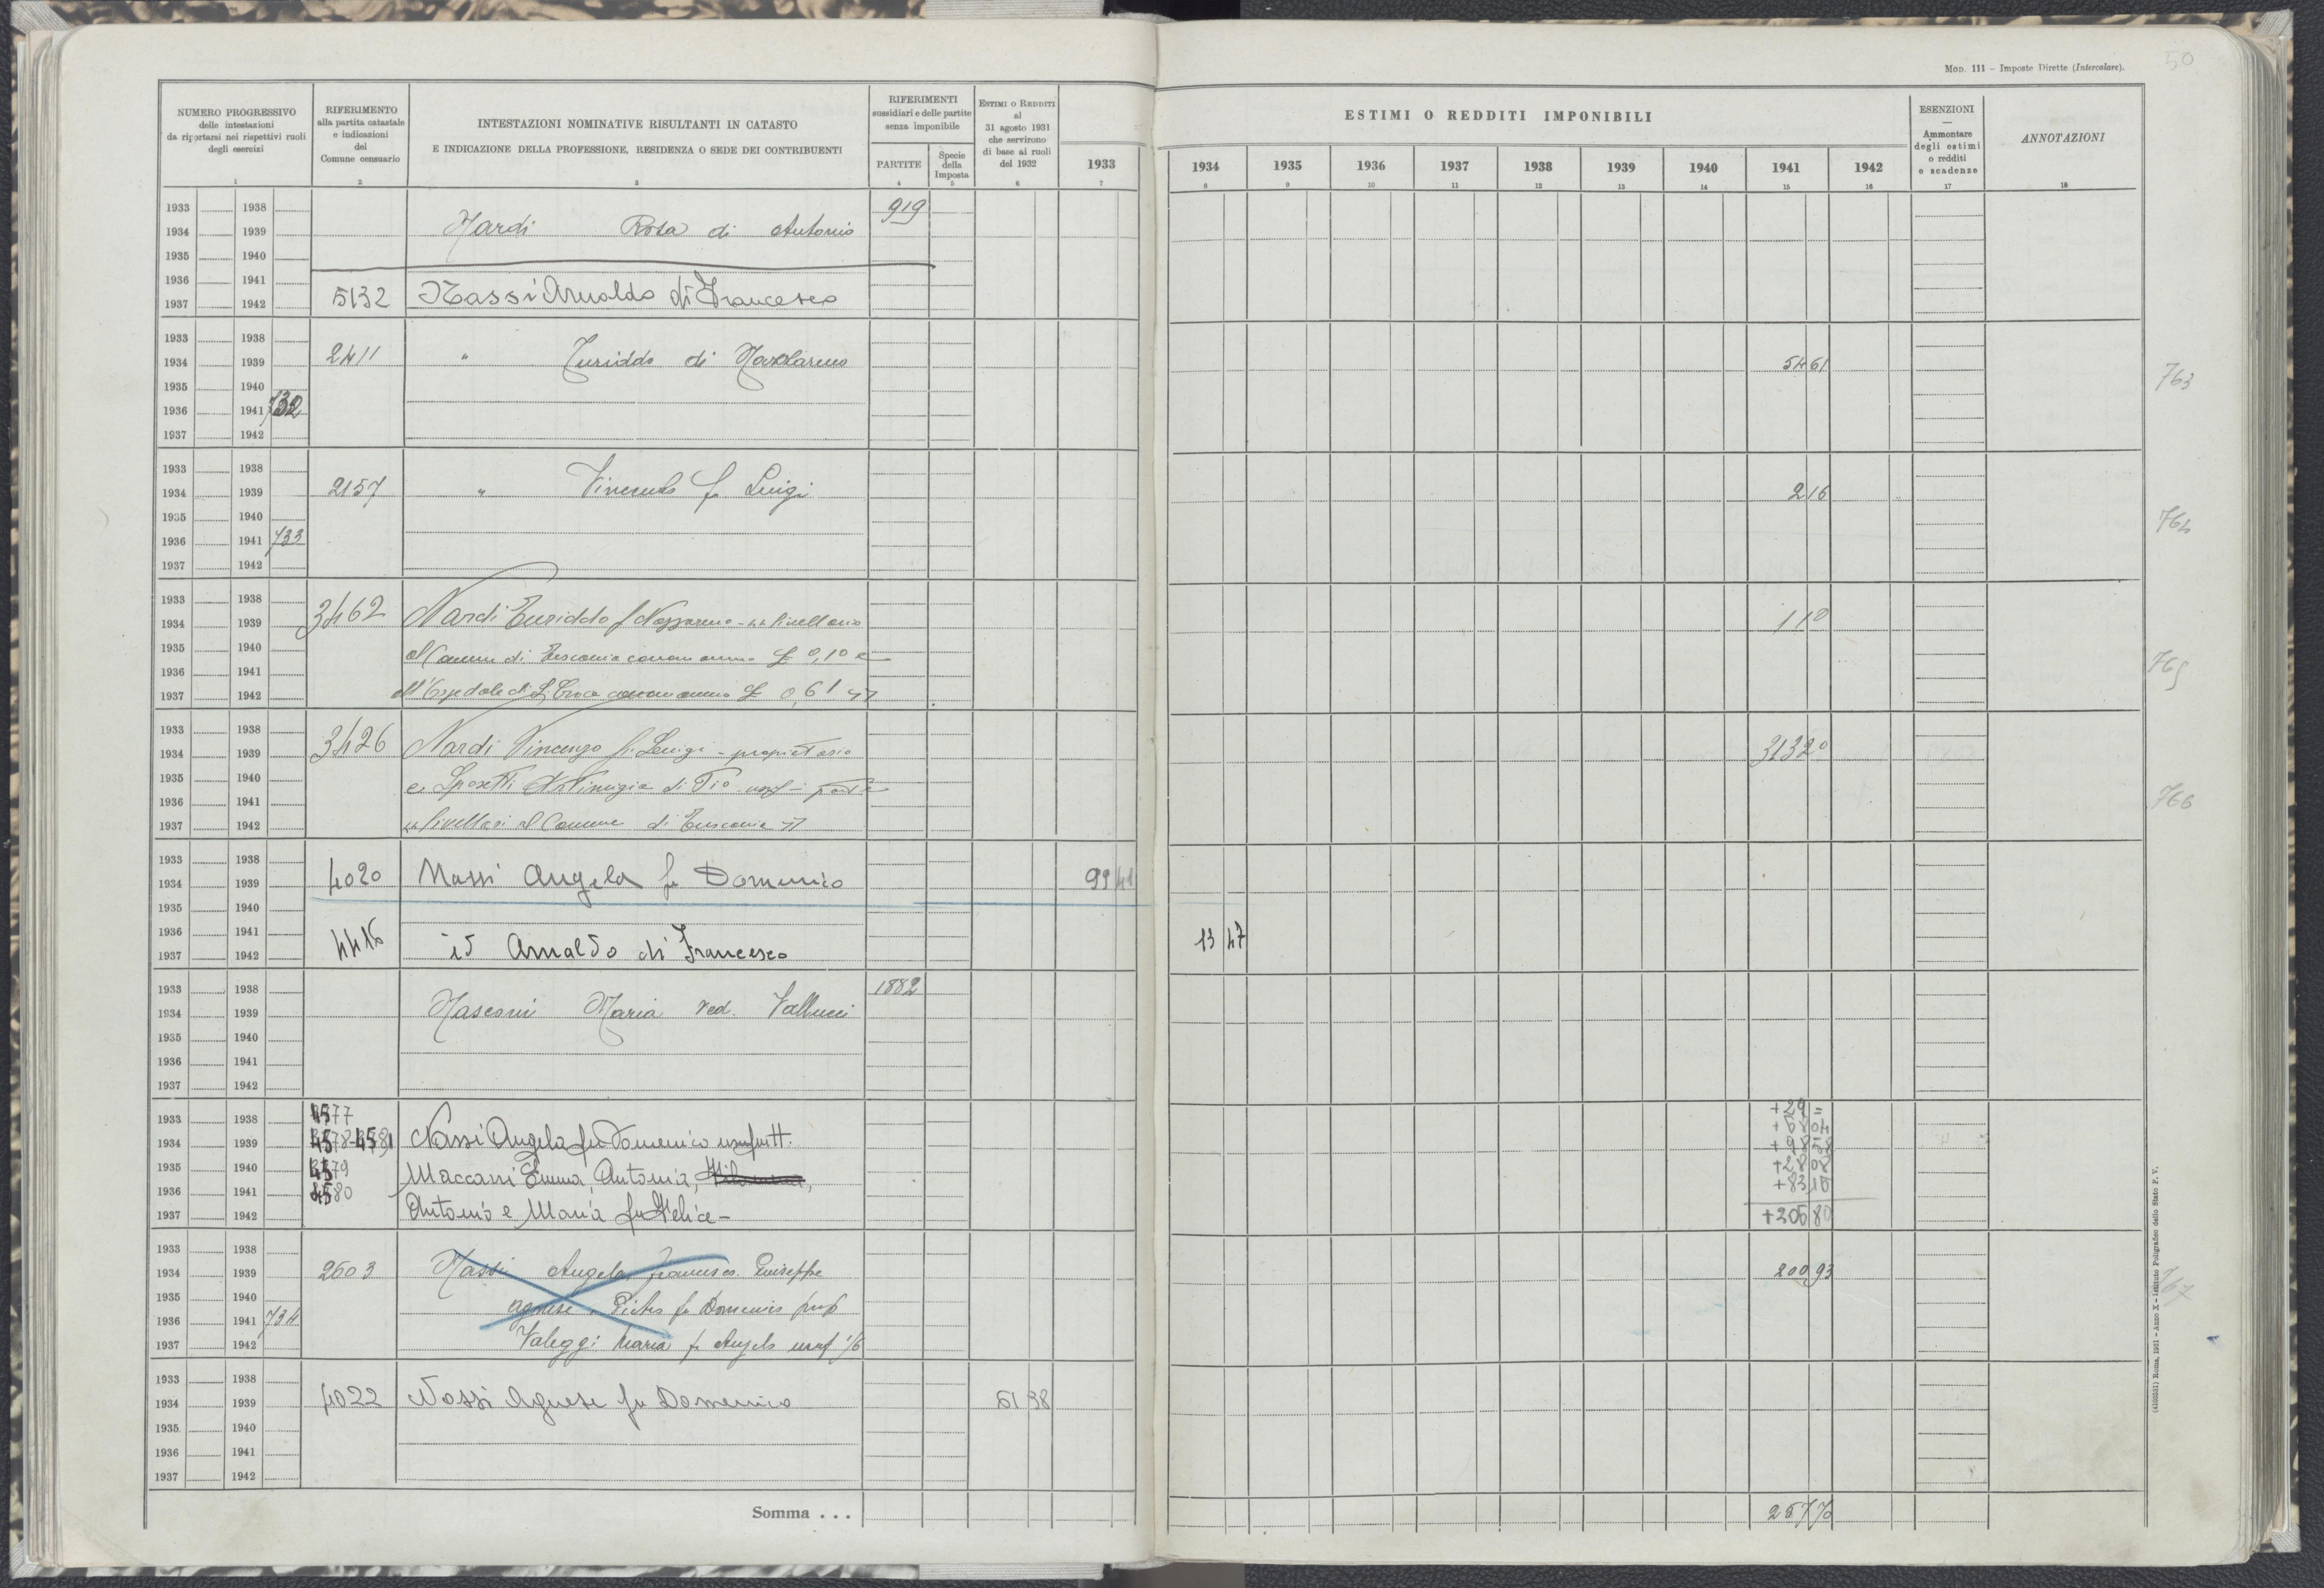 50
Mod. 111 – Imposte Dirette (Intercalare).
NUMERO PROGRESSIVO
delle intestazioni
da riportarsi nei rispettivi ruoli
degli esercizi
RIFERIMENTO
alla partita catastale
e indicazioni
del
Comune censuario
INTESTAZIONI NOMINATIVE RISULTANTI IN CATASTO
E INDICAZIONE DELLA PROFESSIONE, RESIDENZA O SEDE DEI CONTRIBUENTI
RIFERIMENTI
sussidiari e delle partite
senza imponibile
PARTITE
Specie
della
Imposta
ESTIMI O REDDITI
al
31 agosto 1931
che servirono
di base ai ruoli
del 1932
1933
ESTIMI O REDDITI IMPONIBILI
1934 1935 1936 1937 1938 1939 1940 1941 1942
ESENZIONI
—
Ammontare
degli estimi
o redditi
e scadenze
ANNOTAZIONI
1 2 3 4 5 6 7 8 9 10 11 12 13 14 15 16 17 18
1933 1938 919
1934 1939 Nardi Rosa di Antonio
1935 1940
1936 1941
1937 1942 5132 Nassi Arnaldo di Francesco
1933 1938
1934 1939 2411 " Turiddo di Nazzareno 54 61
1935 1940 763
1936 1941 732
1937 1942
1933 1938
1934 1939 2157 " Vincenzo fu Luigi 2 16
1935 1940 764
1936 1941 733
1937 1942
1933 1938
1934 1939 3462 Nardi Turiddo f Nazzareno - livellario 1 10
1935 1940 al Comune di Tuscania canone annuo £ 0,10 e
1936 1941 765
1937 1942 all'Ospedale di S. Croce canone annuo £ 0,61
1933 1938
1934 1939 3426 Nardi Vincenzo di Luigi - proprietario 313 20
1935 1940 e Sposetti di Pio usuf - parte
1936 1941 766
1937 1942 livellari al Comune di Tuscania
1933 1938
1934 1939 4020 Nassi Angela fu Domenico 99 41
1935 1940
1936 1941
1937 1942 4416 id Arnaldo di Francesco 13 47
1933 1938 1882
1934 1939 Nasconi Maria ved. Vallucci
1935 1940
1936 1941
1937 1942
1933 1938 4577 +29 =
1934 1939 4578-4581 Nassi Angela fu Domenico usufrutt.
1935 1940 4579 Maccarri Emma, Antonia, +28 08
1936 1941 4580 +83 10
1937 1942 Antonio e Maria fu Felice - +205 80
1933 1938
1934 1939 2603 Nassi Angela, Francesco, Giuseppe 200 93
1935 1940 767
1936 1941 734 Agnese, Pietro fu Domenico prop
1937 1942 Valeggi Maria fu Angelo usuf 1/6
1933 1938
1934 1939 4022 Nassi Agnese fu Domenico 51 38
1935 1940
1936 1941
1937 1942
Somma . . . 257 70
(4100531) Roma, 1931 – Anno X – Istituto Poligrafico dello Stato P. V.